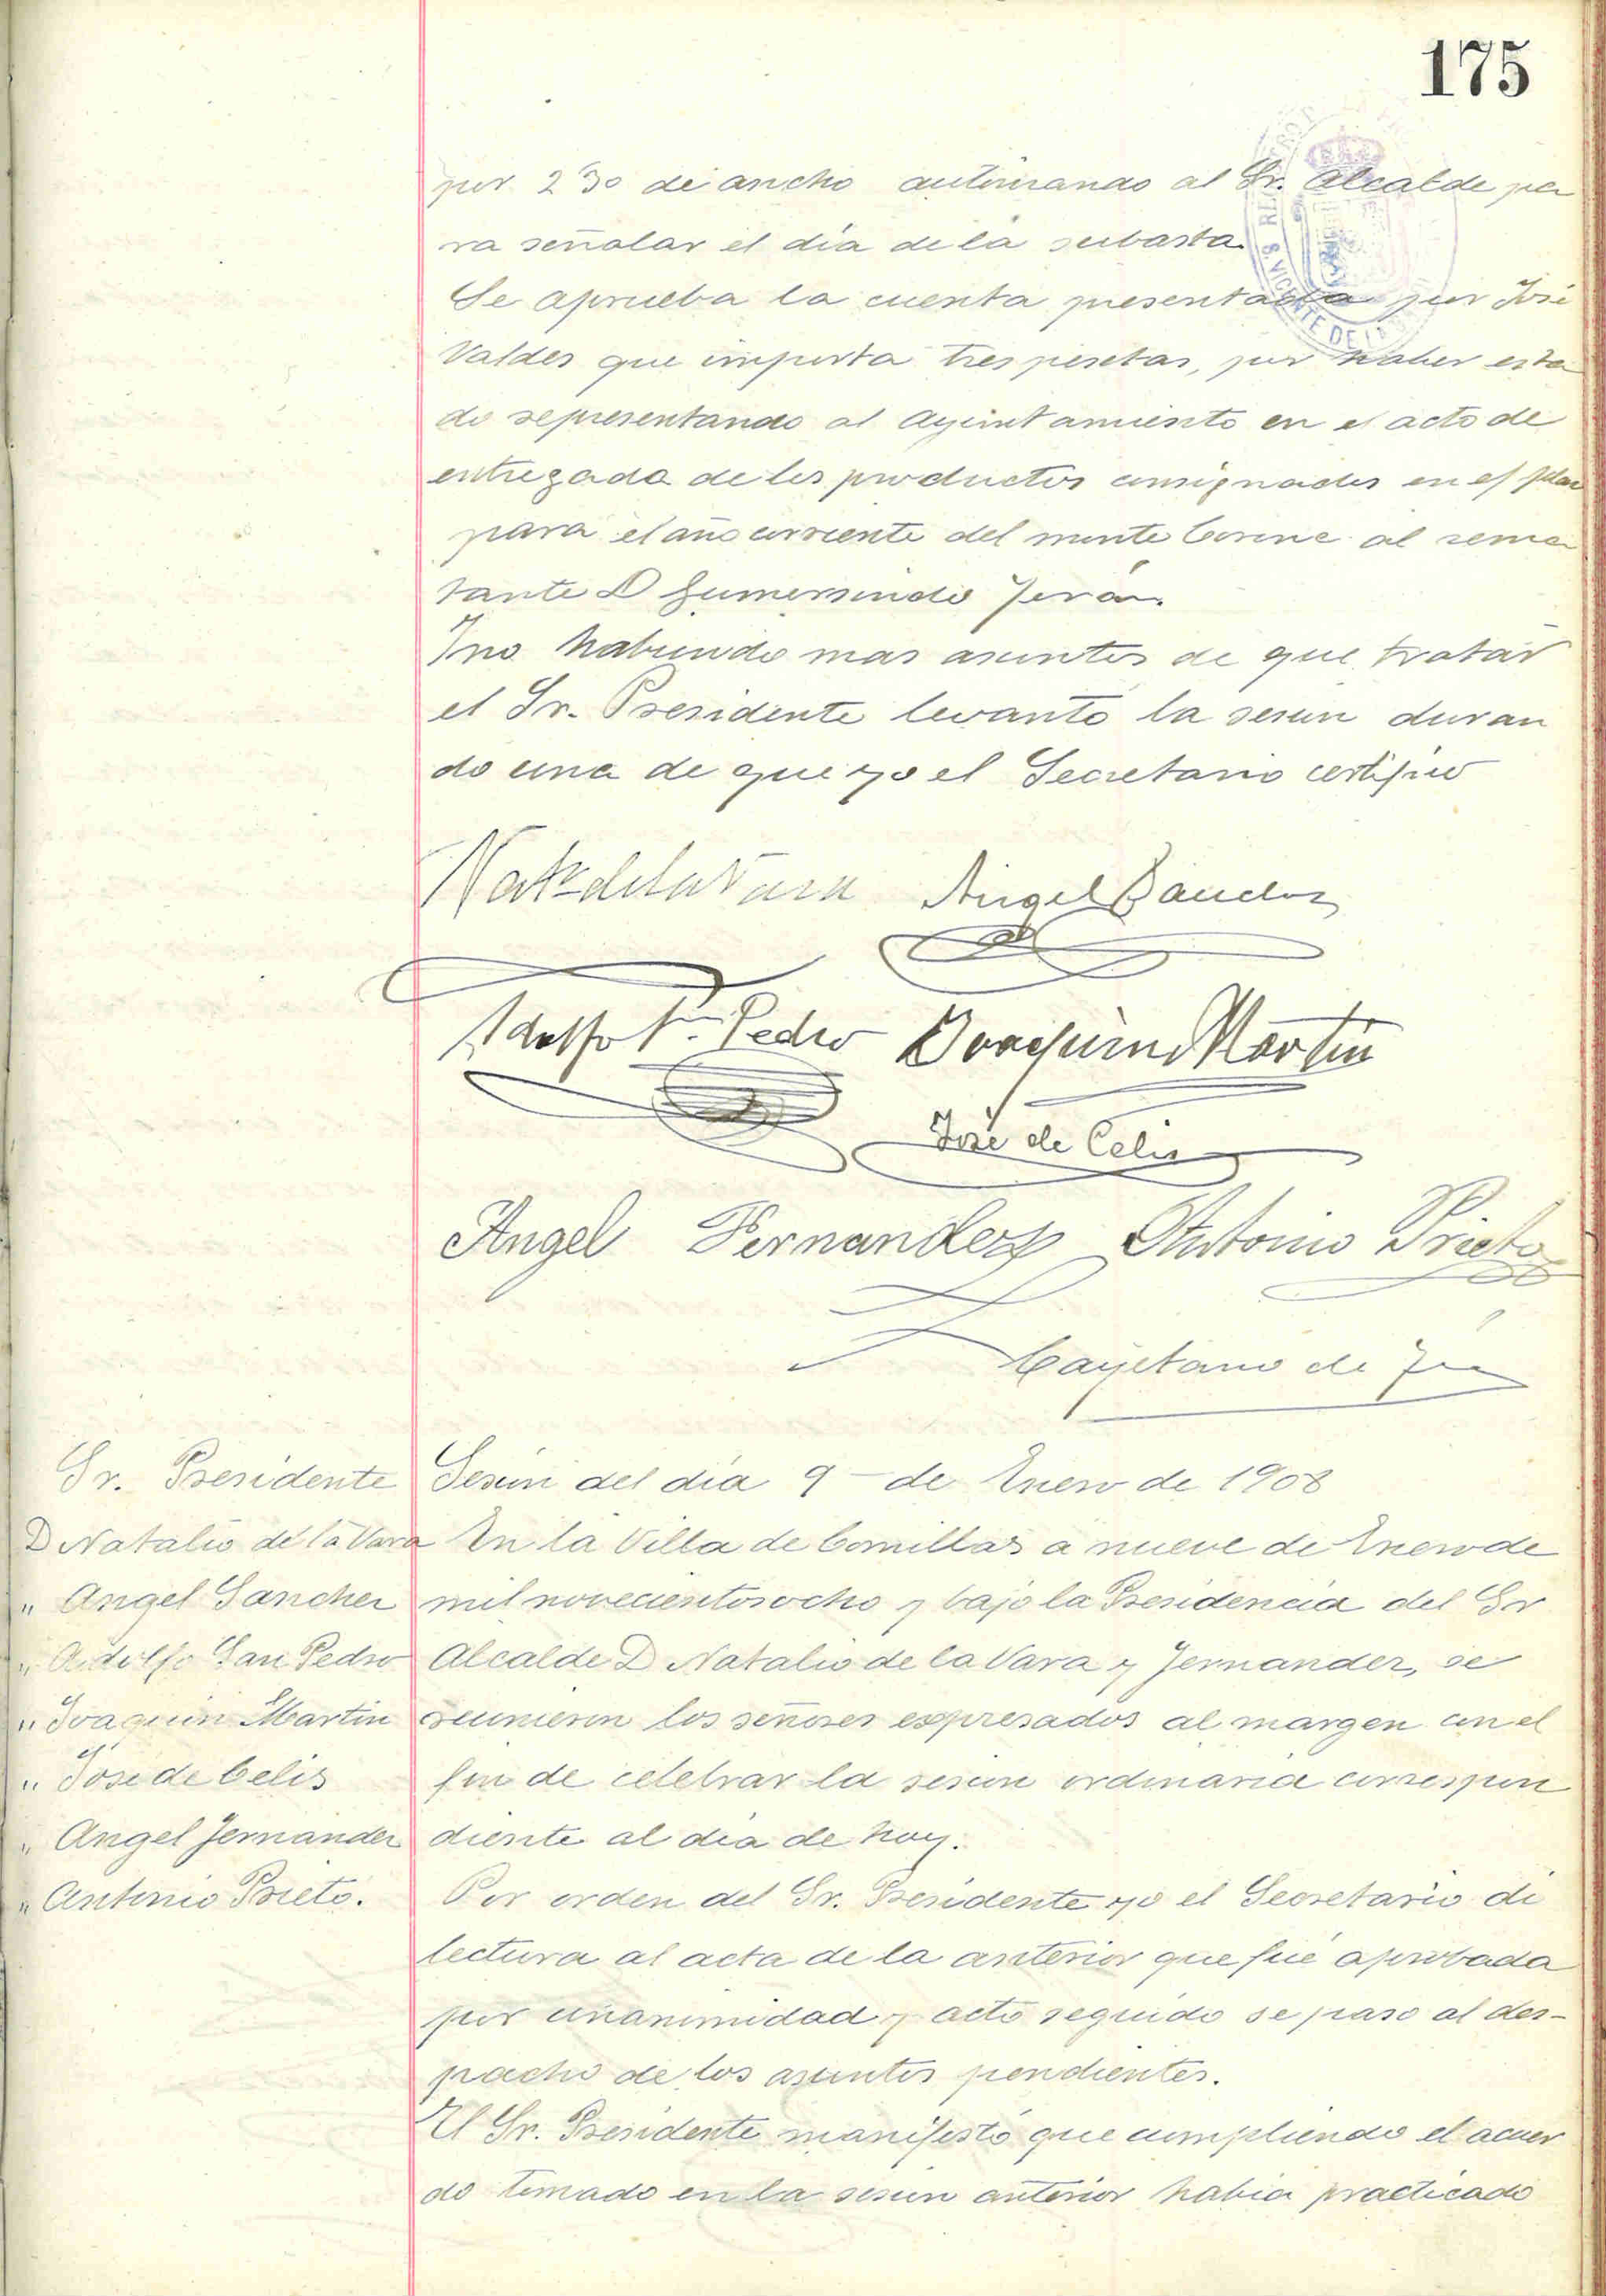 175
por 2'30 de ancho autorizando al Sr. Alcalde pa
ra señalar el día de la subasta.
Se aprueba la cuenta presentada por José
Valdes que importa tres pesetas, por haber esta
do representando al Ayuntamiento en el acto de
entregada de los productos consignados en el plan
para el año corriente del monte Corona al rema
tante D Gumersindo Terán.
Y no habiendo mas asuntos de que tratar
el Sr. Presidente levantó la sesion duran
do una de que yo el Secretario certifico
Nat. de la Vara Angel Sanchez
Adolfo Sn Pedro Joaquin Martin
José de Celis
Angel Fernandez Antonio Prieto
Cayetano de
Sr. Presidente
D Natalio de la Vara
" Angel Sanchez
" Adolfo San Pedro
" Joaquin Martin
" José de Celis
" Angel Fernandez
" Antonio Prieto.
Sesion del día 9 de Enero de 1908
En la Villa de Comillas a nueve de Enero de
mil novecientos ocho y bajo la Presidencia del Sr
Alcalde D Natalio de la Vara y Fernandez, se
reunieron los señores expresados al margen con el
fin de celebrar la sesion ordinaria correspon
diente al día de hoy.
Por orden del Sr. Presidente yo el Secretario di
lectura al acta de la anterior que fué aprobada
por unanimidad y acto seguido se paso al des-
pacho de los asuntos pendientes.
El Sr. Presidente manifestó que cumpliendo el acuer
do tomado en la sesion anterior habia practicado